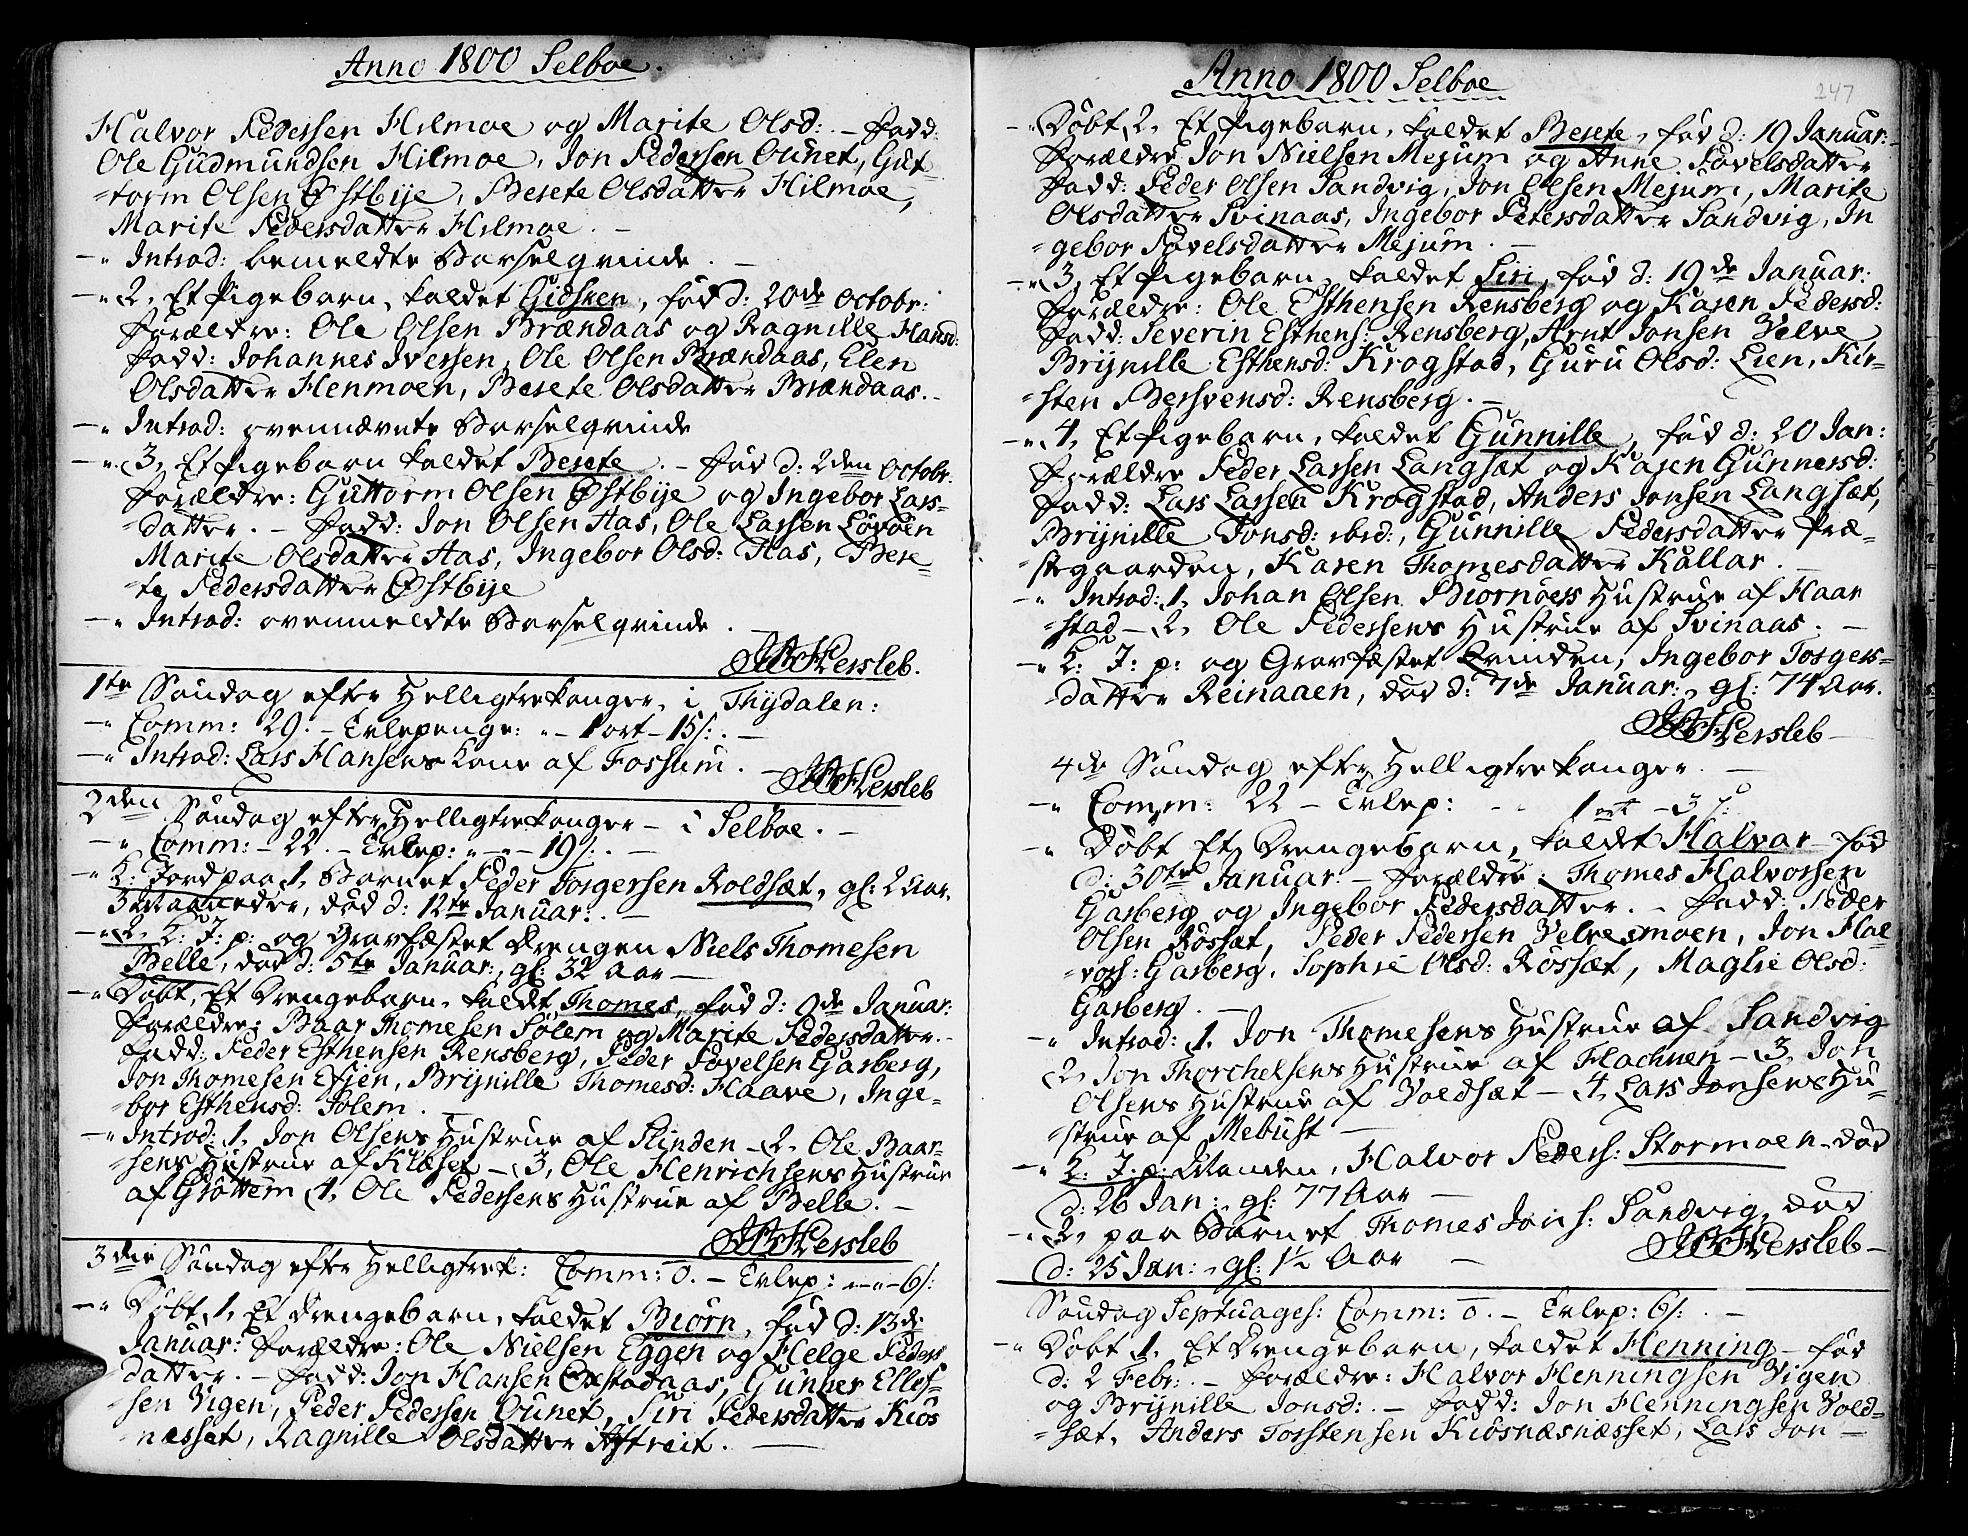 Anno 1800 Selboe.
Halvor Pedersen Hilmoe og Marite Olsd: - Fadd:
Ole Gudmundsen Hilmoe, Jon Pedersen Ounet, Gut
-torm Olsen Østbÿe, Berete Olsdatter Hilmoe,
Marite Pedersdatter Hilmoe. -
-" Introd: bemeldte Barselqvinde. -
-" 2, Et Pigebarn, kaldet Gidsken, fød d: 20de Octobr:
Forældre: Ole Olsen Brændaas og Ragnille Hansd:
Fadd: Johannes Iversen, Ole Olsen Brændaas, Elen
Olsdatter Henmoen, Berete Olsdatter Brændaas. -
-" Introd: ovennævnte Barselqvinde
-" 3, Et Pigebarn kaldet Berete. - fød d: 2den Octobr:
Forældre: Guttorm Olsen Østbÿe og Ingebor Lars-
-datter. - Fadd: Jon Olsen Aas, Ole Larsen Løvøen
Marite Olsdatter Aas, Ingebor Olsd: Aas, Bere-
-te Pedersdatter Østbÿe
-" Introd: ovenmeldte Barselqvinde. -
JBHersleb.
1te Søndag efter Helligtrekonger, i Thÿdalen:
-" Comm: 29. - Evlepenge: "- 1 ort - 15 s: . -
-" Introd: Lars Hansens Kone af Fossum. -
JBHersleb
2den Søndag efter Helligtrekonger - i Selboe. -
-" Comm: - 22. - Evlep: " - " - 19 s: . -
-" K: Jord paa 1, Barnet Peder Torgersen Roldsæt, gl: 2 Aar,
3 Maaneder, død d: 12te Januar: . -
-" 2, K: J: p: og Gravfæstet Drengen Niels Thomesen
Belle, død d: 5te Januar:, gl: 32 Aar -
-" Døbt, Et Drengebarn, kaldet Thomes, fød d: 9de Januar:
Forældre: Baar Thomesen Sølem og Marite Pedersdatter. -
Fadd: Peder Esthensen Rensberg, Peder Povelsen Garberg,
Jon Thomesen Evjen, Brÿnille Thomesd: Haave, Inge-
-bor Esthensd: Solem. -
-" Introd: 1, Jon Olsens Hustrue af Slinden - 2, Ole Baar-
-sens Hustrue af Kilset - 3, Ole Henrichsens Hustrue
af Grøttem 4, Ole Pedersens Hustrue af Belle. -
JBHersleb
3die Søndag efter Helligtrek: Comm: 0. - Evlep: "-"- 6 s:
-" Døbt, 1, Et Drengebarn, kaldet Biørn, fød d: 13de
Januar: Forældre: Ole Nielsen Eggen og Helge Peders
datter. - Fadd: Jon Hansen Evstadaas, Gunner Ellef-
-sen Vigen, Peder Pedersen Ounet, Siri Pedersdatter Kiøs
-næsset, Ragnille Olsdatter Aftreit. -
Anno 1800 Selboe
247
-" Døbt 2, Et Pigebarn, kaldet Berete, fød d: 19 Januar: -
Forældre Jon Nielsen Mejum og Anne Povelsdatter
Fadd: Peder Olsen Sandvig, Jon Olsen Mejum, Marite
Olsdatter Svinaas, Ingebor Petersdatter Sandvig, In
-gebor Povelsdatter Mejum. -
-" 3, Et Pigebarn, kaldet Siri, fød d: 19de Januar:
Forældre: Ole Esthensen Rensberg og Karen Pedersd:
Fadd: Severin Esthens: Rensberg, Arnt Jonsen Velve,
Brÿnille Esthensd: Krogstad, Guru Olsd: Lien, Kir-
-sten Bersvensd: Rensberg. -
-" 4, Et Pigebarn, kaldet Gunnille, fød d: 20 Jan:
Forældre Peder Larsen Langsæt og Karen Gunnersd:
Fadd: Lars Larsen Krogstad, Anders Jonsen Langsæt,
Brÿnille Jonsd: ibid:, Gunnille Pedersdatter Præ-
-stegaarden, Karen Thomesdatter Kallar. -
-" Introd: 1, Johan Olsen Biørnøers Hustrue af Haar
-stad - 2, Ole Pedersens Hustrue af Svinaas. -
-" K: J: p: og Gravfæstet Qvinden, Ingebor Torgers-
-datter Reinaaen, død d: 7de Januar:, gl: 74 Aar.
JBHersleb -
4de Søndag efter Helligtrekonger. -
-" Comm: 22 - Evlep: - - 1 ort - 3 s:
-" Døbt Et Drengebarn, kaldet Halvor - fød
d: 30te Januar - Forældre: Thomes Halvorsen
Garberg og Ingebor Pedersdatter. - Fadd: Peder
Olsen Rosset, Peder Pedersen Velvesmoen, Jon Hal-
-vors: Garberg, Sophie Olsd: Rosset, Maglie Olsd:
Garberg. -
-" Introd: 1, Jon Thomesens Hustrue af Sandvig
2, Jon Thorchelsens Hustrue af Flachnen - 3, Jon
Olsens Hustrue af Voldsæt - 4, Lars Jonsens Hu-
-strue af Mebust -
-" K: J: p: Manden, Halvor Peders: Stormoen - død
d: 26 Jan:, gl: 77 Aar -
-" 2, paa Barnet Thomes Jons: Sandvig, død
d: 25 Jan:, gl: 1½ Aar -
JBHersleb -
Søndag Septuages: Comm: 0. - Evlep: 6 s: . -
-" Døbt 1, Et Drengebarn, kaldet Henning - fød
d: 2 Febr: . - Forældre: Halvor Henningsen Vigen
og Brÿnille Jonsd: . - Fadd: Jon Henningsen Vold-
-sæt, Anders Torstensen Kiøsnæsnæsset, Lars Jon -